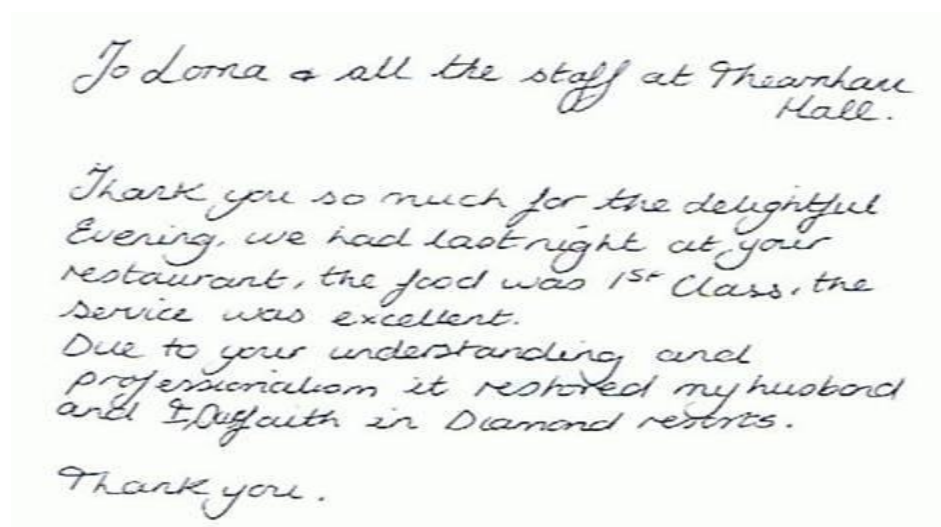 To Lorna & all the staff at Thurnham
Hall.
Thank you so much for the delightful
Evening, we had last night at your
restaurant, the food was 1st Class, the
service was excellent.
Due to your understanding and
professionalism it restored my husband
and I, Our faith in Diamond resorts.
Thank you.